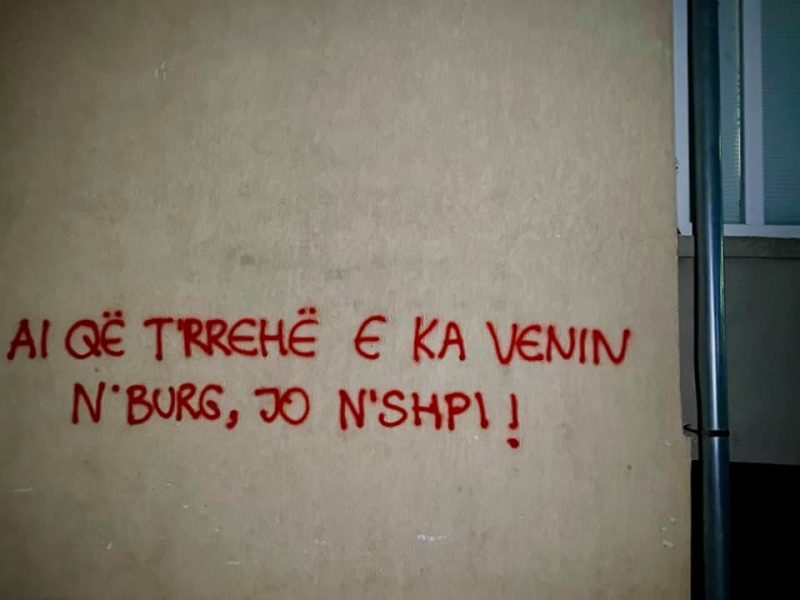 AI QË T'RREHË E KA VENIN
N'BURG, JO N'SHPI!